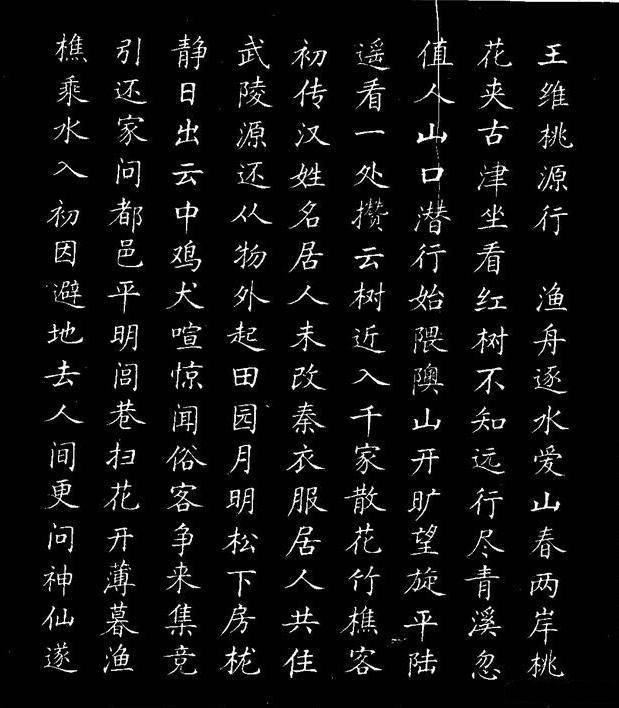 王维桃源行 渔舟逐水爱山春两岸桃
花夹古津坐看红树不知远行尽青溪忽
值人山口潜行始隈隩山开旷望旋平陆
遥看一处攒云树近入千家散花竹樵客
初传汉姓名居人未改秦衣服居人共住
武陵源还从物外起田园月明松下房栊
静日出云中鸡犬喧惊闻俗客争来集竞
引还家问都邑平明闾巷扫花开薄暮渔
樵乘水入初因避地去人间更问神仙遂